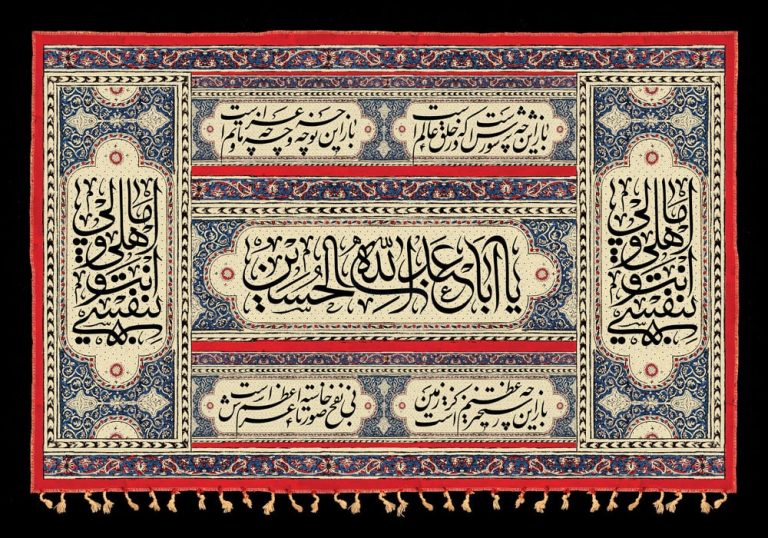 باز این چه شورش است که در خلق عالم است
باز این چه نوحه و چه عزا و چه ماتم است
بنفسي انت و اهلي و مالي
یا اباعبدالله الحسین
بنفسي انت و اهلي و مالي
باز این چه رستخیز عظیم است کز زمین
بی نفخ صور خاسته تا عرش اعظم است